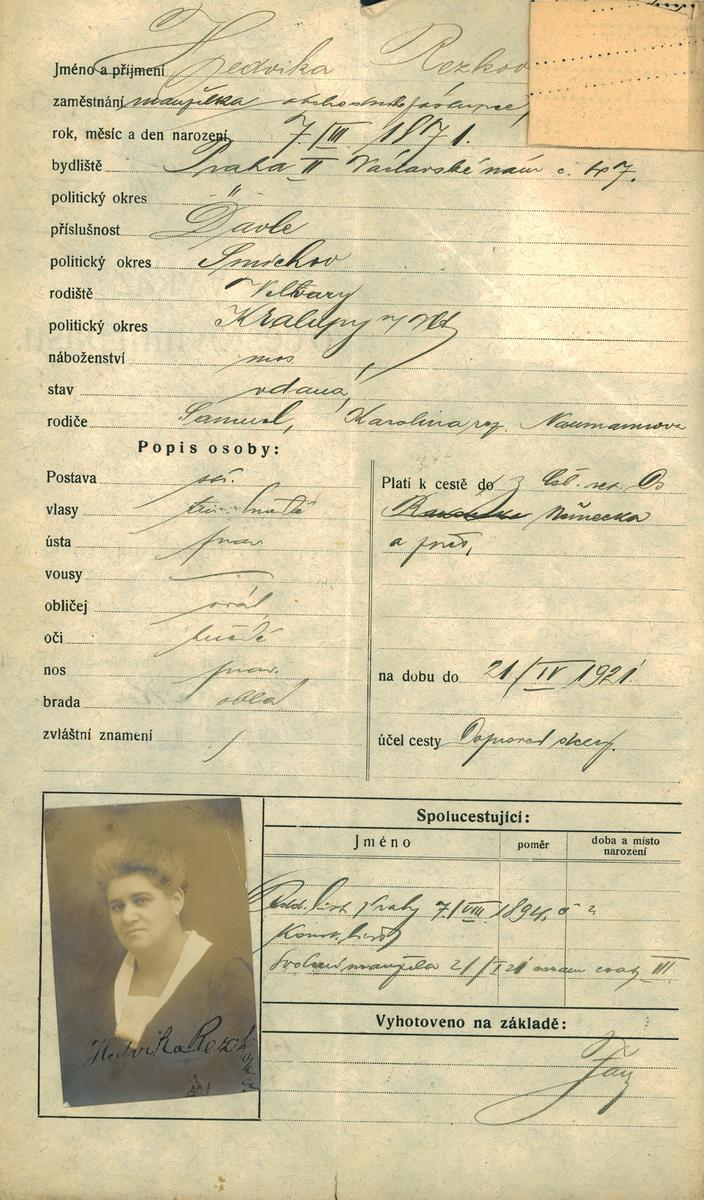 Jméno a příjmení Hedvika Rezkov
zaměstnání manželka obchodního
rok, měsíc a den narození 7./III 1871.
bydliště Praha II Václavské nám č. 47.
politický okres "
příslušnost Davle
politický okres Smíchov
rodiště Velvary
politický okres Kralupy n/Vlt
náboženství mos
stav vdaná
rodiče Samuel, Karolina roz. Naumannova
Popis osoby:
Postava stř.
vlasy tm. hnědé
ústa prav.
vousy —
obličej ovál
oči hnědé
nos prav.
brada oblá
zvláštní znamení /
Platí k cestě do
Německa
a
na dobu do 21/IV 1921
účel cesty
Spolucestující:
Jméno poměr doba a místo narození
Odd. list Prahy 7/VIII 1894, č
Svolení manžela 21/I 21
Vyhotoveno na základě:
Hedvika Rezk